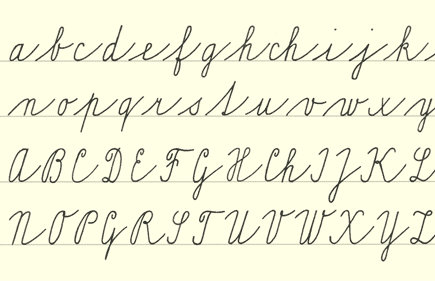 a b c d e f g h ch i j k
n o p q r s t u v w x y
A B C D E F G H Ch I J K L
N O P Q R S T U V W X Y Z